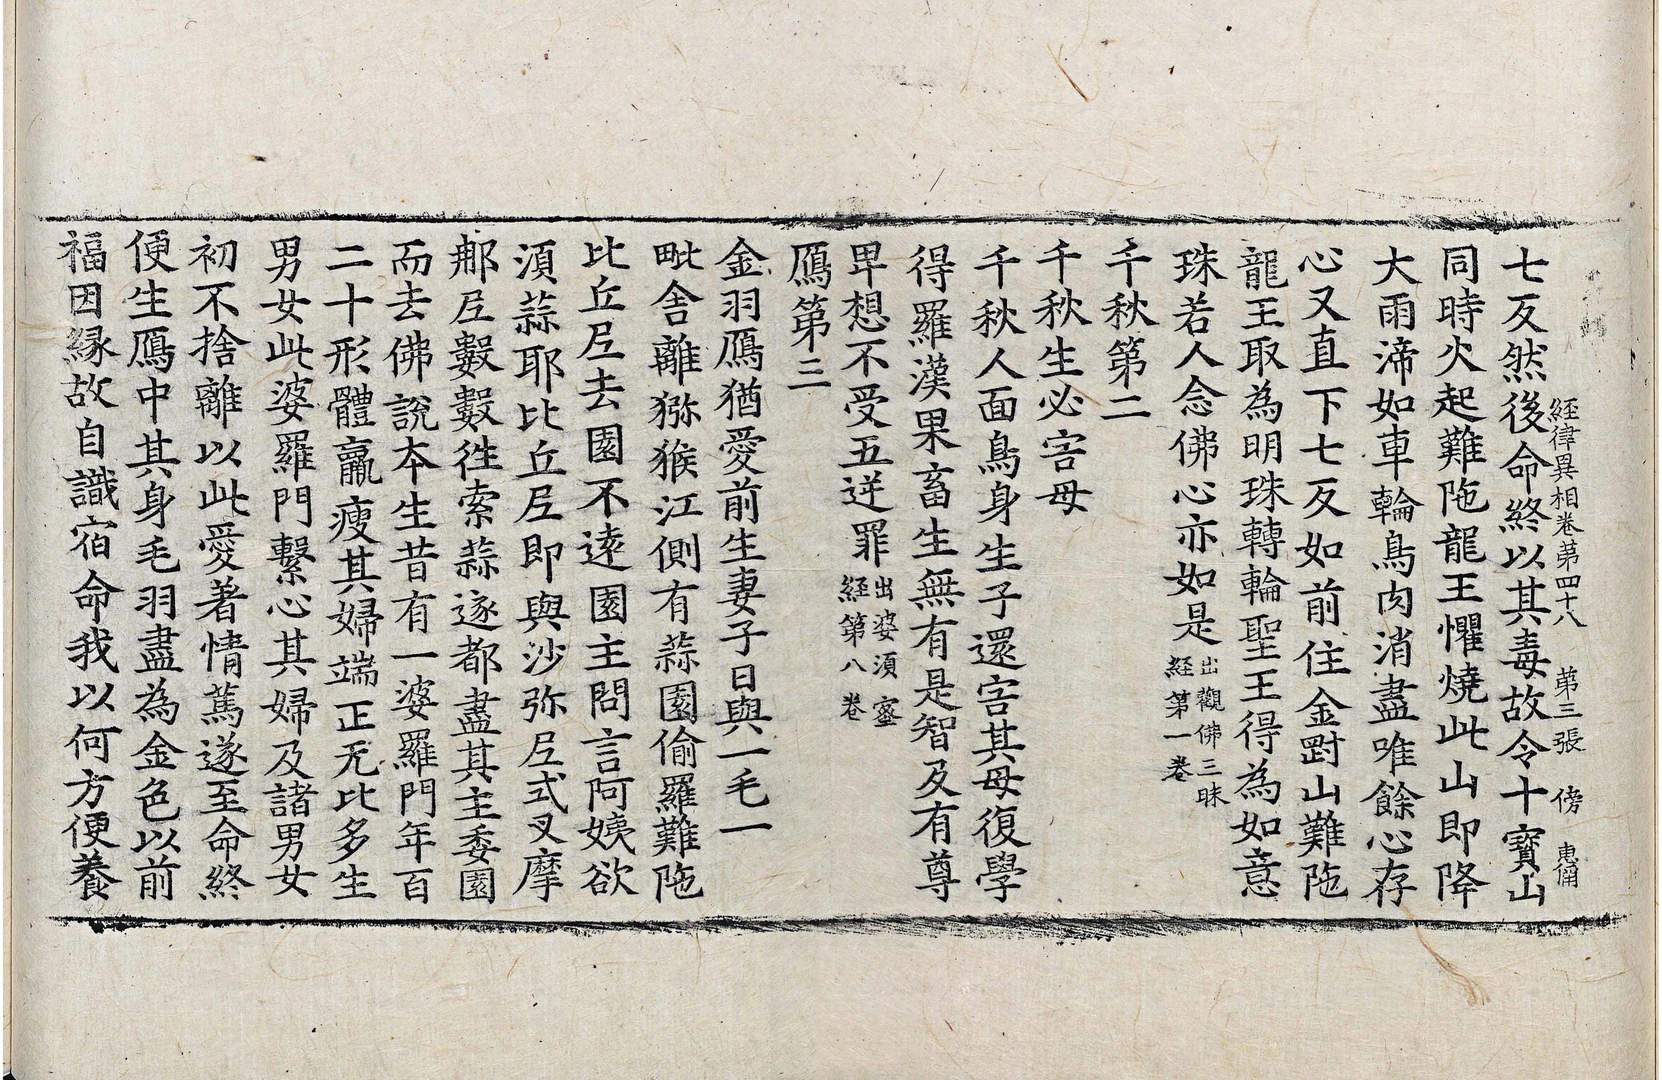 經律異相卷第四十八 第三張 傍 惠俌
七反然後命終以其毒故令十寶山
同時火起難陁龍王懼燒此山即降
大雨渧如車輪鳥肉消盡唯餘心存
心又直下七反如前住金罰山難陁
龍王取為明珠轉輪聖王得為如意
珠若人念佛心亦如是出觀佛三昧經第一卷
千秋第二
千秋生必害母
千秋人面鳥身生子還害其母復學
得羅漢果畜生無有是智及有尊
卑想不受五逆罪出婆須蜜經第八卷
鴈第三
金羽鴈猶愛前生妻子日與一毛一
毗舍離獼猴江側有蒜園偷羅難陁
比丘尼去園不遠園主問言阿姨欲
須蒜耶比丘尼即與沙弥尼式叉摩
那尼數數徃索蒜遂都盡其主委園
而去佛說本生昔有一婆羅門年百
二十形體羸瘦其婦端正无比多生
男女此婆羅門繫心其婦及諸男女
初不捨離以此愛著情篤遂至命終
便生鴈中其身毛羽盡為金色以前
福因縁故自識宿命我以何方便養